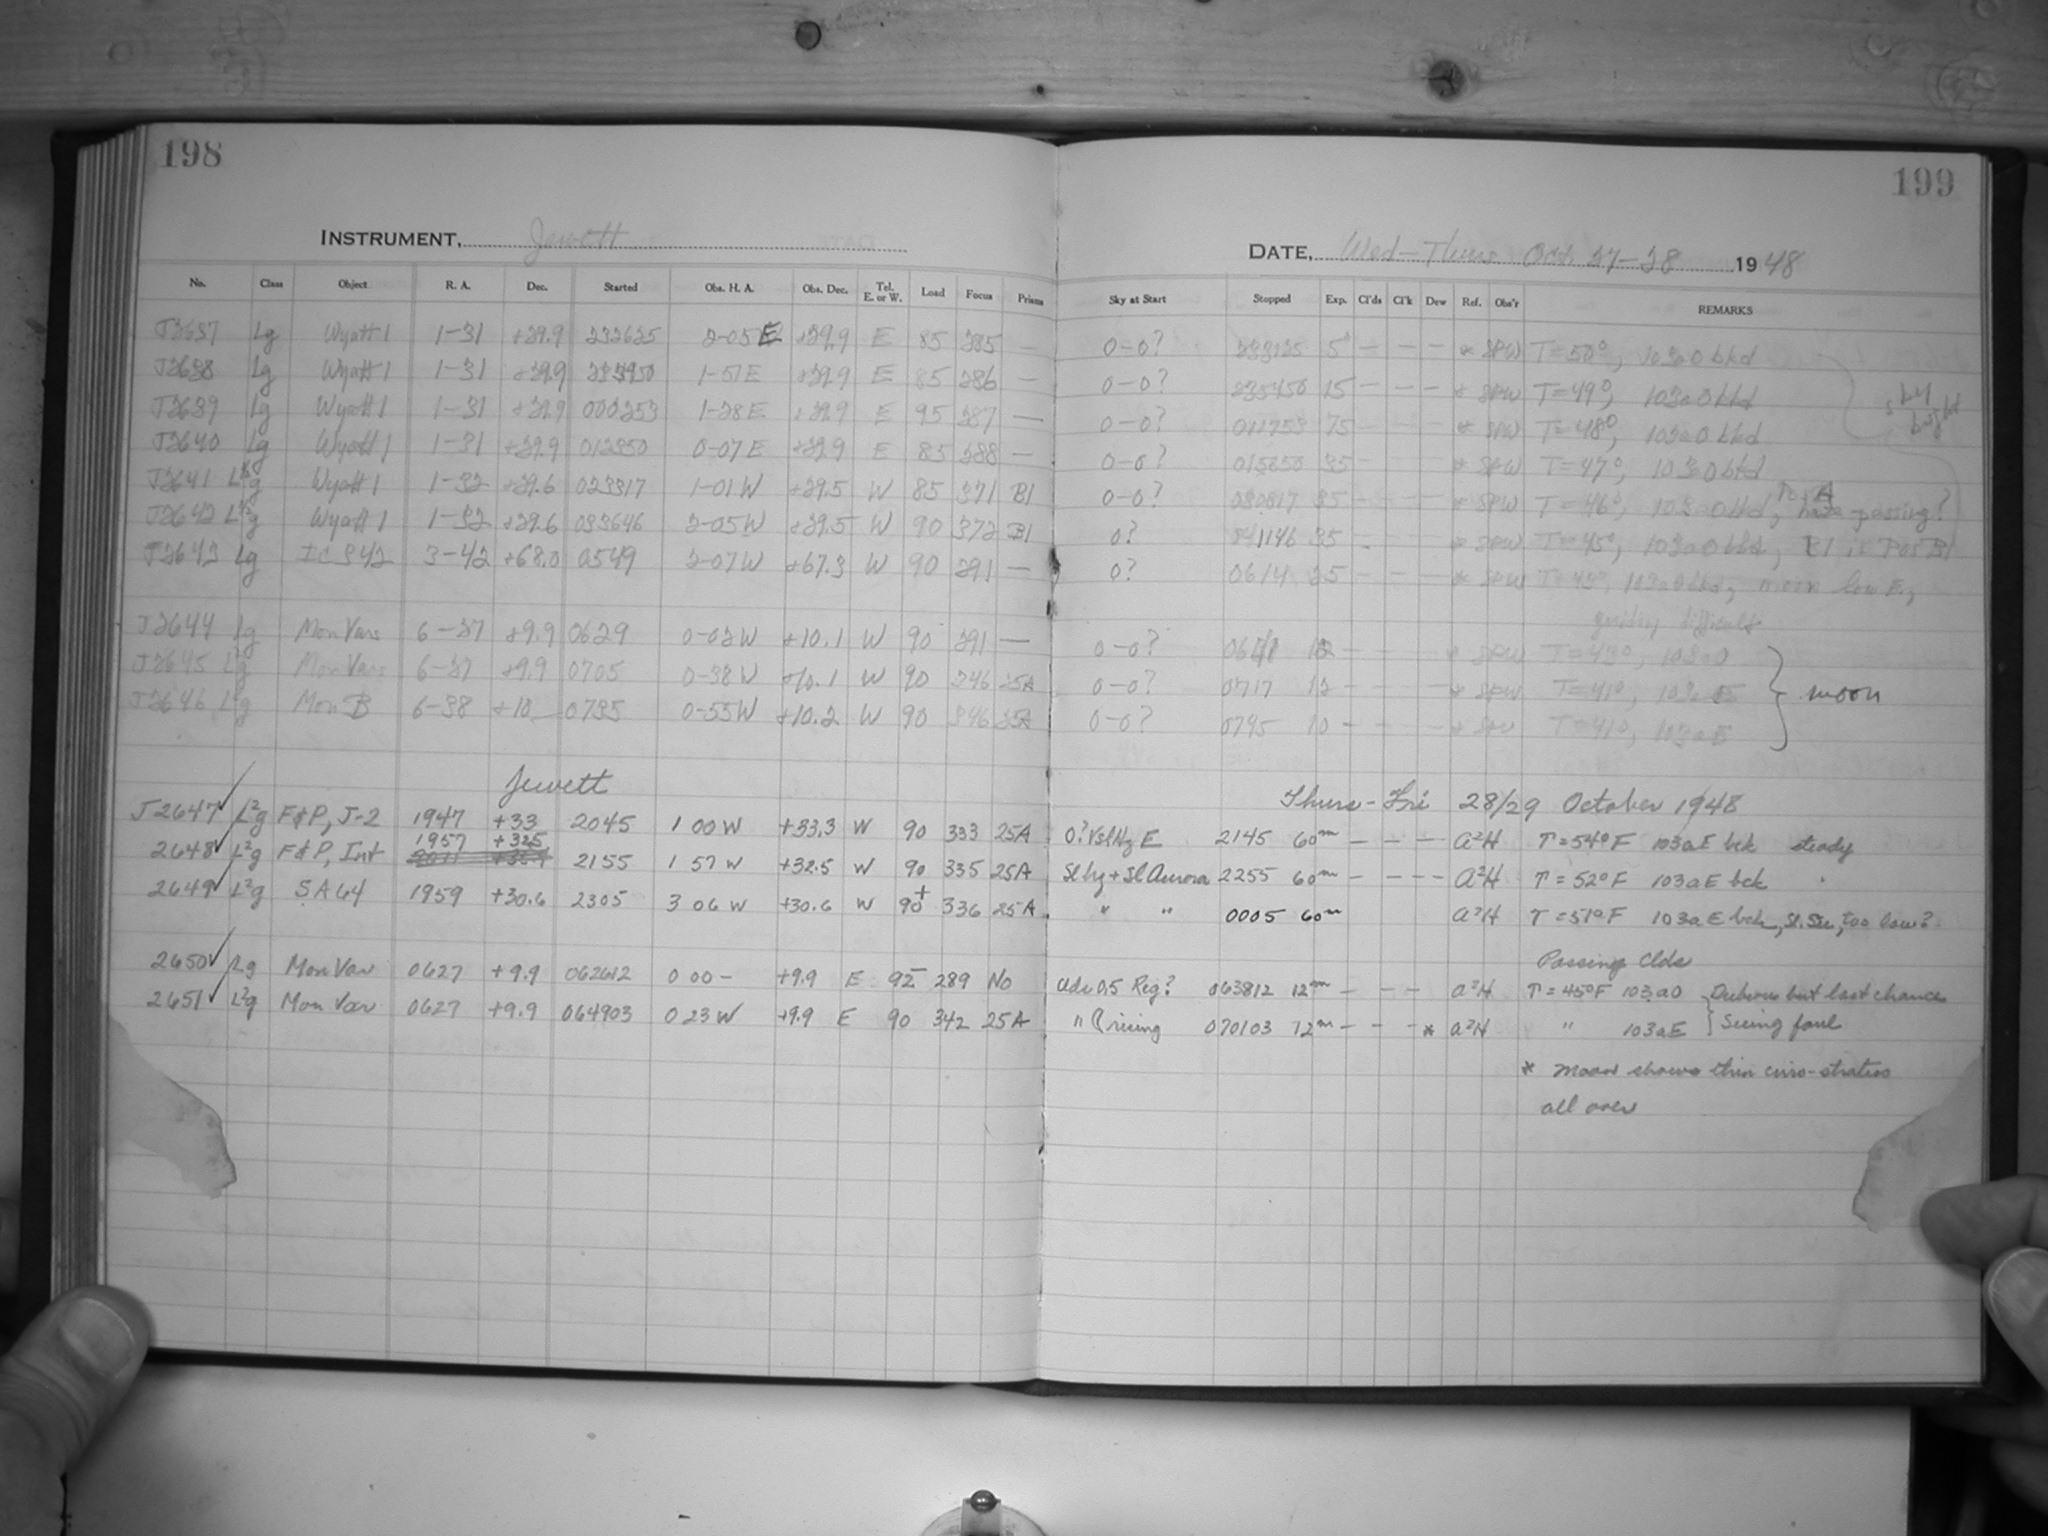 198
199
INSTRUMENT, Jewett
DATE, Wed-Thurs Oct 27-28 1948
No. Class Object R. A. Dec. Started Obs. H. A. Obs. Dec. Tel. E. or W. Load Focus Prisms Sky at Start Stopped Exp. Cl'ds Cl'k Dew Ref. Obs'r REMARKS
J2637 Lg Wyatt 1 1-31 +29.9 232625 2-05 E +29.9 E 85 285 — 0-0? 233125 5 — — — * SPW T=50°, 103a0 bkd
J2638 Lg Wyatt 1 1-31 +29.9 233950 1-51 E +29.9 E 85 286 — 0-0? 235450 15 — — — * SPW T=49°, 103a0 bkd sky bright
J2639 Lg Wyatt 1 1-31 +29.9 000253 1-28 E +29.9 E 95 287 — 0-0? 011753 75 — — — * SPW T=48°, 103a0 bkd
J2640 Lg Wyatt 1 1-31 +29.9 012350 0-07 E +29.9 E 85 288 — 0-0? 015850 35 — * SPW T=47°, 103a0 bkd
J2641 L²g Wyatt 1 1-32 +29.6 023317 1-01 W +29.5 W 85 371 B1 0-0? 030817 35 — — — * SPW T=46°, 103a0 bkd, haze passing?
J2642 L²g Wyatt 1 1-32 +29.6 033646 2-05 W +29.5 W 90 372 B1 0? 041146 35 * SPW T=45°, 103a0 bkd,
J2643 Lg IC 342 3-42 +68.0 0549 2-07 W +67.3 W 90 291 — 0? 0614 25 — — — * SPW T=43°, 103a0 bkd, moon low E.,
guiding difficult
J2644 Lg Mon Vars 6-27 +9.9 0629 0-02 W +10.1 W 90 291 — 0-0? 0641 12 — — — * SPW T=43°, 103a0
J2645 L²g Mon Vars 6-27 +9.9 0705 0-38 W +10.1 W 90 346 25A 0-0? 0717 12 — — — * SPW T=41°, 103aE moon
J2646 L²g Mon B 6-38 +10 0735 0-55 W +10.2 W 90 346 25A 0-0? 0745 10 — — — * SPW T=41°, 103aE
Jewett Thurs - Fri 28/29 October 1948
J2647 L²g F&P, J-2 1947 +33 2045 1 00 W +33.3 W 90 333 25A 0? VslHz E 2145 60m — — — — A²H T=54°F 103aE bck steady
2648 L²g F&P, Int 1957 +32.5 2155 1 57 W +32.5 W 90 335 25A Sl hz + Sl Aurora 2255 60m — — — — A²H T=52°F 103aE bck "
2649 L²g SA64 1959 +30.6 2305 3 06 W +30.6 W 90+ 336 25A " " 0005 60m A²H T=51°F 103aE bck, Sl. See, too low?
Passing Clds
2650 Lg Mon Var 0627 +9.9 062612 0 00 - +9.9 E 92- 289 No 063812 12m — — — A²H T=45°F 103a0 Dubious but last chance
2651 L²g Mon Var 0627 +9.9 064903 0 23 W +9.9 E 90 342 25A " rising 070103 12m — — — * A²H " 103aE Seeing foul
* Moon shows thin cirro-stratus
all over